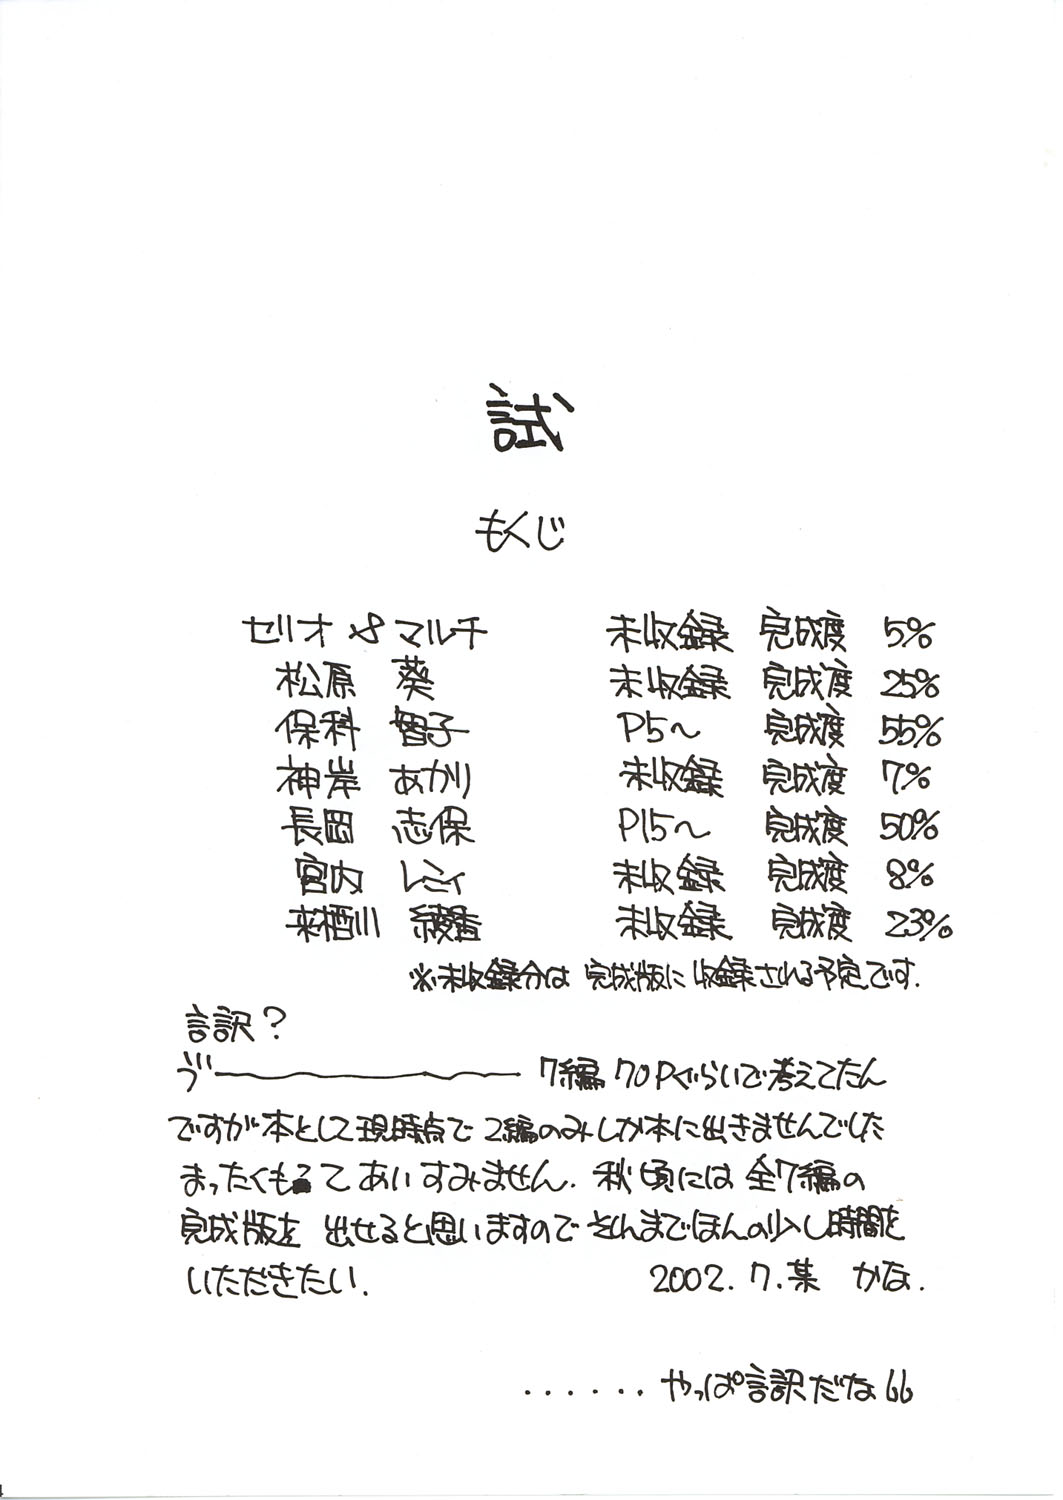 試
もくじ
セリオ & マルチ 未収録 完成度 5%
松原 葵 未収録 完成度 25%
保科 智子 P5〜 完成度 55%
神岸 あかり 未収録 完成度 7%
長岡 志保 P15〜 完成度 50%
宮内 レミィ 未収録 完成度 8%
来栖川 綾香 未収録 完成度 23%
※未収録分は 完成版に収録される予定です.
言訳?
ヴ―――――― 7編 70Pぐらいで考えてたん
ですが本として現時点で 2編のみしか本に出きませんでした
まったくもって あいすみません. 秋頃には 全7編の
完成版を 出せると思いますので それまでほんの少し時間を
いただきたい. 2002.7.某 かな.
......やっぱ言訳だな